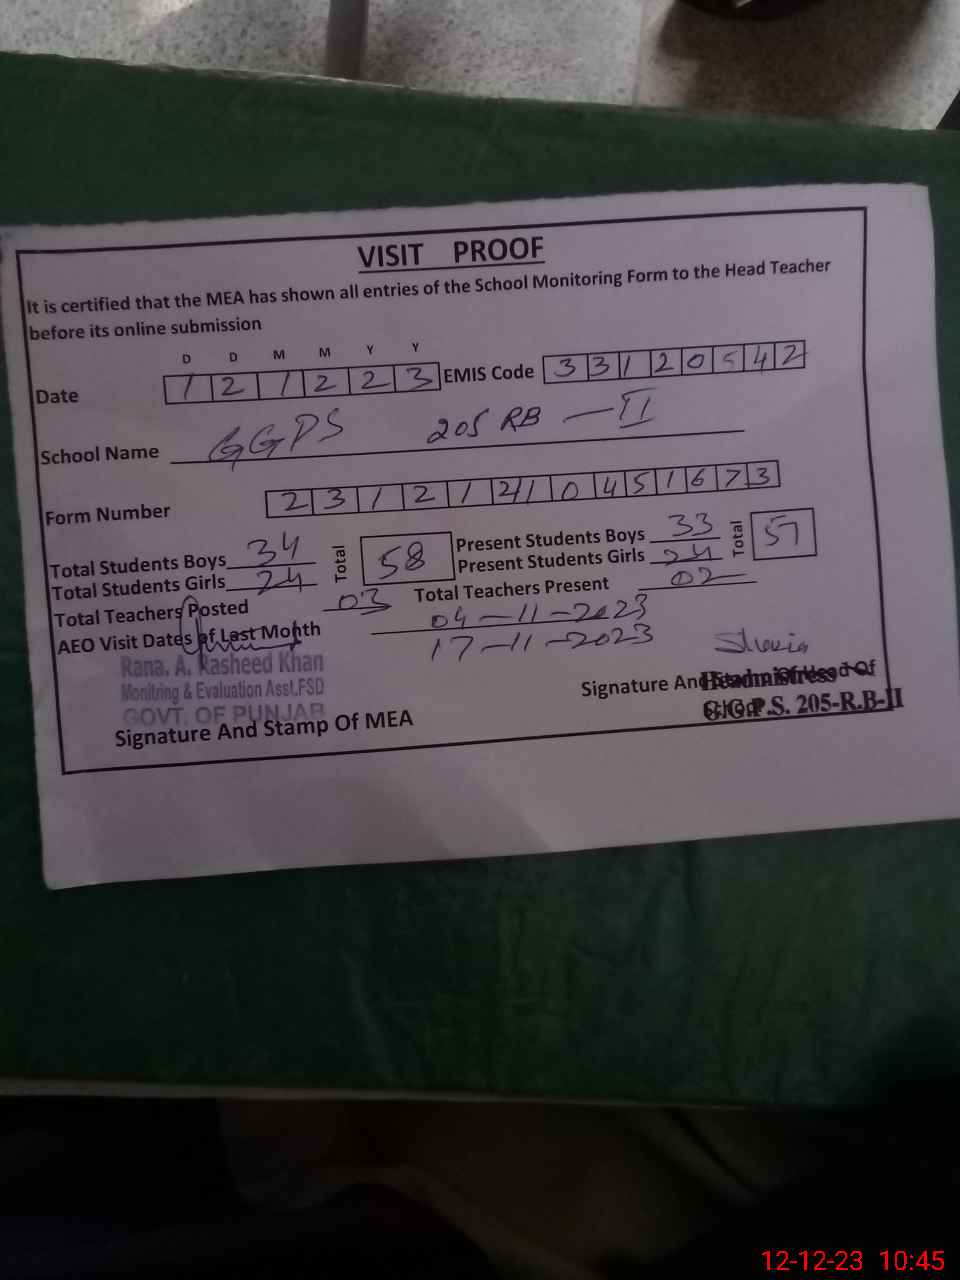 VISIT PROOF
It is certified that the MEA has shown all entries of the School Monitoring Form to the Head Teacher
before its online submission
D D M M Y Y
Date 1 2 1 2 2 3 EMIS Code 3 3 1 2 0 5 4 2
School Name GGPS 205 RB - II
Form Number 2 3 1 2 1 2 1 0 4 5 1 6 7 3
Total Students Boys 34 Total 58 Present Students Boys 33 Total 57
Total Students Girls 24 Present Students Girls 24
Total Teachers Posted 03 Total Teachers Present 02
AEO Visit Dates of Last Month 04-11-2023
17-11-2023
Rana. A. Rasheed Khan
Monitring & Evaluation Asst.FSD
GOVT. OF PUNJAB
Signature And Stamp Of MEA
Signature And Stamp Of Head Of
Headmistress
G.G.P.S. 205-R.B-II
12-12-23 10:45